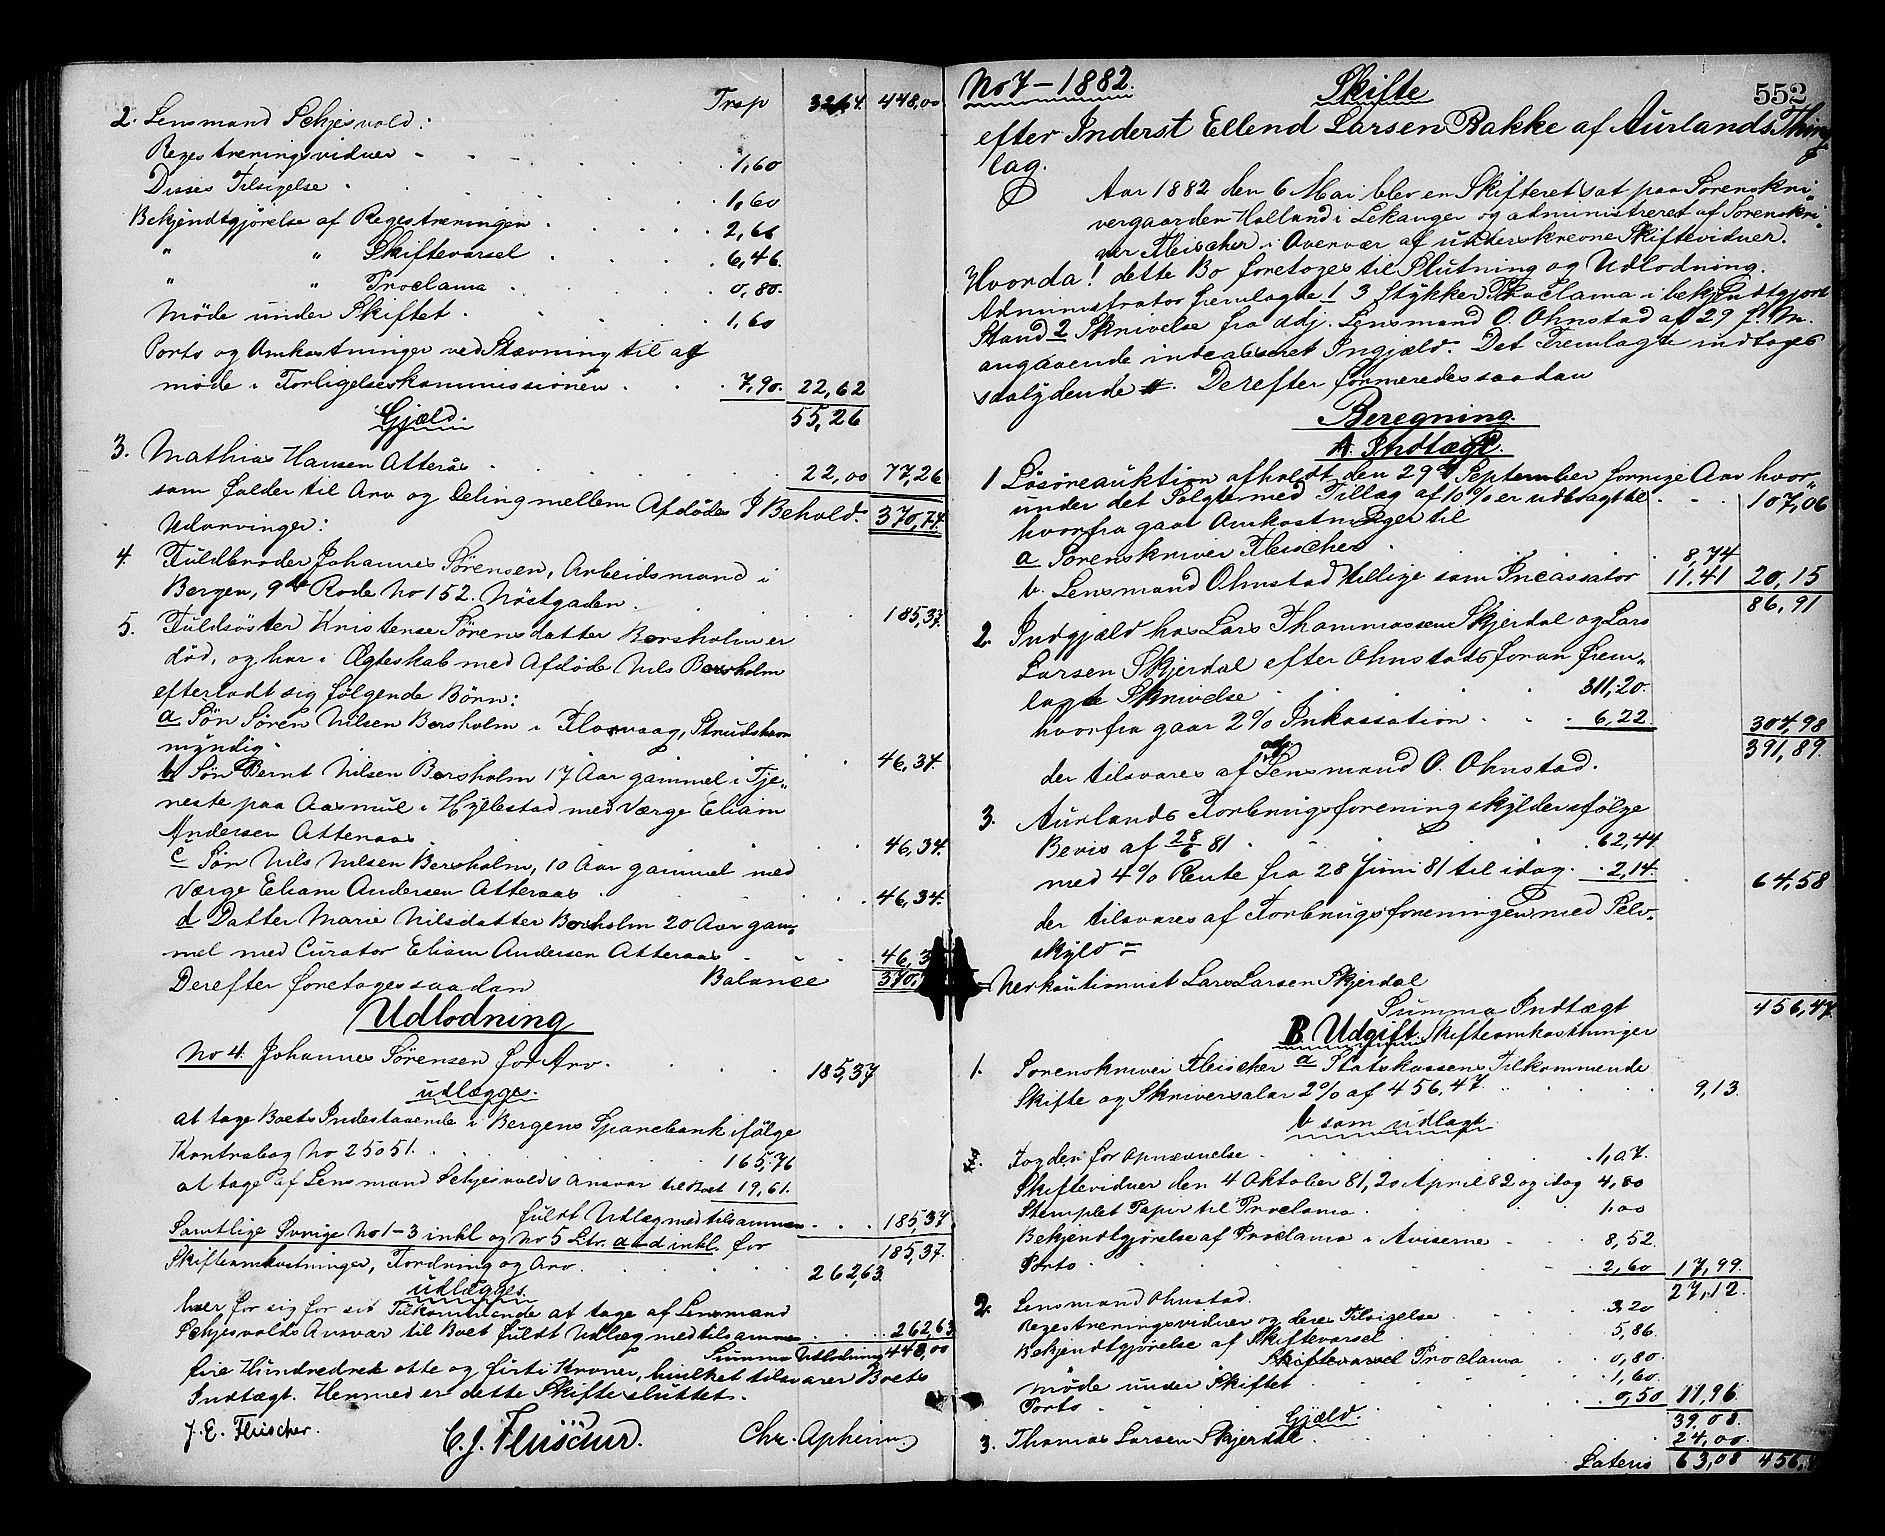 Trsp 32,64. 448,00
2. Lensmand Schjesvold:
Registreringsvidner 1,60
Disses Tilsigelse 1,60
Bekjendtgjørelse af Registreringen 2,66
" " Skiftevarsel 6,46.
" " Proclama 0,80.
Møde under Skiftet 1,60
Porto og Omkostninger ved Stævning til og
møde i Forligelseskommissionen 7,90. 22,62
55,26
Gjæld.
3. Mathias Hansen Atterås 22,00 77,26
som falder til Arv og Deling mellem Afdødes I Behold. 370,74.
Udarvinger:
4. Fuldbroder Johannes Sørensen, Arbeidsmand i
Bergen, 9de Rode No 152. Nøstgaden. 185,37.
5. Fuldsøster Kristense Sørensdatter Borsholm er
død, og har i Ægteskab med Afdøde Nils Borsholm
efterladt sig følgende Børn:
a Søn Søren Nilsen Borsholm i Florvaag, Strudshavn
myndig. 46,34.
b Søn Bernt Nilsen Borsholm 17 Aar gammel i Tje-
neste paa Aasmul i Hyllestad med Værge Eliam
Andersen Atteraas 46,34.
c Søn Nils Nilsen Borsholm, 10 Aar gammel med
Værge Eliam Andersen Atteraas 46,34.
d Datter Marie Nilsdatter Borsholm 20 Aar gam-
mel med Curator Eliam Andersen Atteraas 46,3
Derefter foretoges saadan Balance 370,
Udlodning
No 4. Johannes Sørensen for Arv. 185,37
udlægges.
at tage Boets Indestaaende i Bergens Sparebank ifølge
Kontrabog No 25051. 165,76
at tage af Lensmand Schjesvolds Ansvar til Boet 19,61.
fuldt Udlæg med tilsammen 185,37.
Samtlige Øvrige No 1-3 inkl og No 5 Ltr. a-d inkl. for 185,37.
Skifteomkostninger, Fordring og Arv. 262,63.
udlægges
hver for sig for sit Tilkommende at tage af Lensmand
Schjesvolds Ansvar til Boet fuldt Udlæg med tilsammen 262,63
Summa Udlodning 448,00
fire Hundrede otte og firti Kroner, hvilket tilsvarer Boets
Indtægt. Hermed er dette Skifte sluttet.
J. E. Fleischer. C. J. Fleischer. Chr. Apheim
No 7 - 1882. Skifte 552
efter Inderst Ellend Larsen Bakke af Aurlands Thing
lag.
Aar 1882 den 6 Mai blev en Skifteret sat paa Sørenskri-
vergaarden Holland i Lekanger og administreret af Sorenskri-
ver Fleischer i Overvær af underskrevne Skiftevidner.
Hvorda! dette Bo foretoges til Slutning og Udlodning.
Administrator fremlagde 1 3 Stykker Proclama i bekjendtgjort
Stand 2 Skrivelse fra adj. Lensmand O. Ohnstad af 29 f. M.
angaaende indcasseret Ingjæld. Det Fremlagte indtoges
saalydende #. Derefter formeredes saadan
Beregning.
A. Indtægt.
1 Løsøreauktion afholdt den 29de September forrige Aar hvor-
under det Solgte med Tillæg af 10% er udbragt til 107,06
hvorfra gaar Omkostninger til
a Sorenskriver Fleischer 8,74
b. Lensmand Ohnstad tillige som Incassator 11,41 20,15
86,91
2. Indgjæld hos Lars Thommassen Skjerdal og Lars
Larsen Skjerdal efter Ohnstads foran frem-
lagte Skrivelse 311,20.
hvorfra gaar 2% Inkassation 6,22. 304,98
391,89.
der tilsvares af adj. Lensmand O. Ohnstad.
3. Aurlands Forbrugsforening skylder ifølge
Bevis af 28/6 81 62,44
med 4% Rente fra 28 Juni 81 til idag. 2,14. 64,58
der tilsvares af Forbrugsforeningen med Selv-
skyld-
kautionist Lars Larsen Skjerdal
Summa Indtægt 456,47.
B Udgift. Skifteomkostninger
1. Sorenskriver Fleischer a Statskassens Tilkommende
Skifte og Skriversalar 2% af 456,47 9,13.
b som udlagt
Fogden for Opnævnelse 1,07.
Skiftevidner den 4 Oktober 81, 20 April 82 og idag 4,80
Stemplet Papir til Proclama 1,00
Bekjendtgjørelse af Proclama i Aviserne 8,52.
Porto 2,60 17,99.
27,12.
2. Lensmand Ohnstad.
Registreringsvidner og deres Tilsigelse 3,20
Bekjendtgjørelse af Skiftevarsel 5,86.
Skiftevarsel Proclama 0,80.
Møde under Skiftet 1,60.
Porto 0,50 11,96
Gjæld. 39,08.
3. Thomas Larsen Skjerdal 24,00.
Lateris 63,08 456,